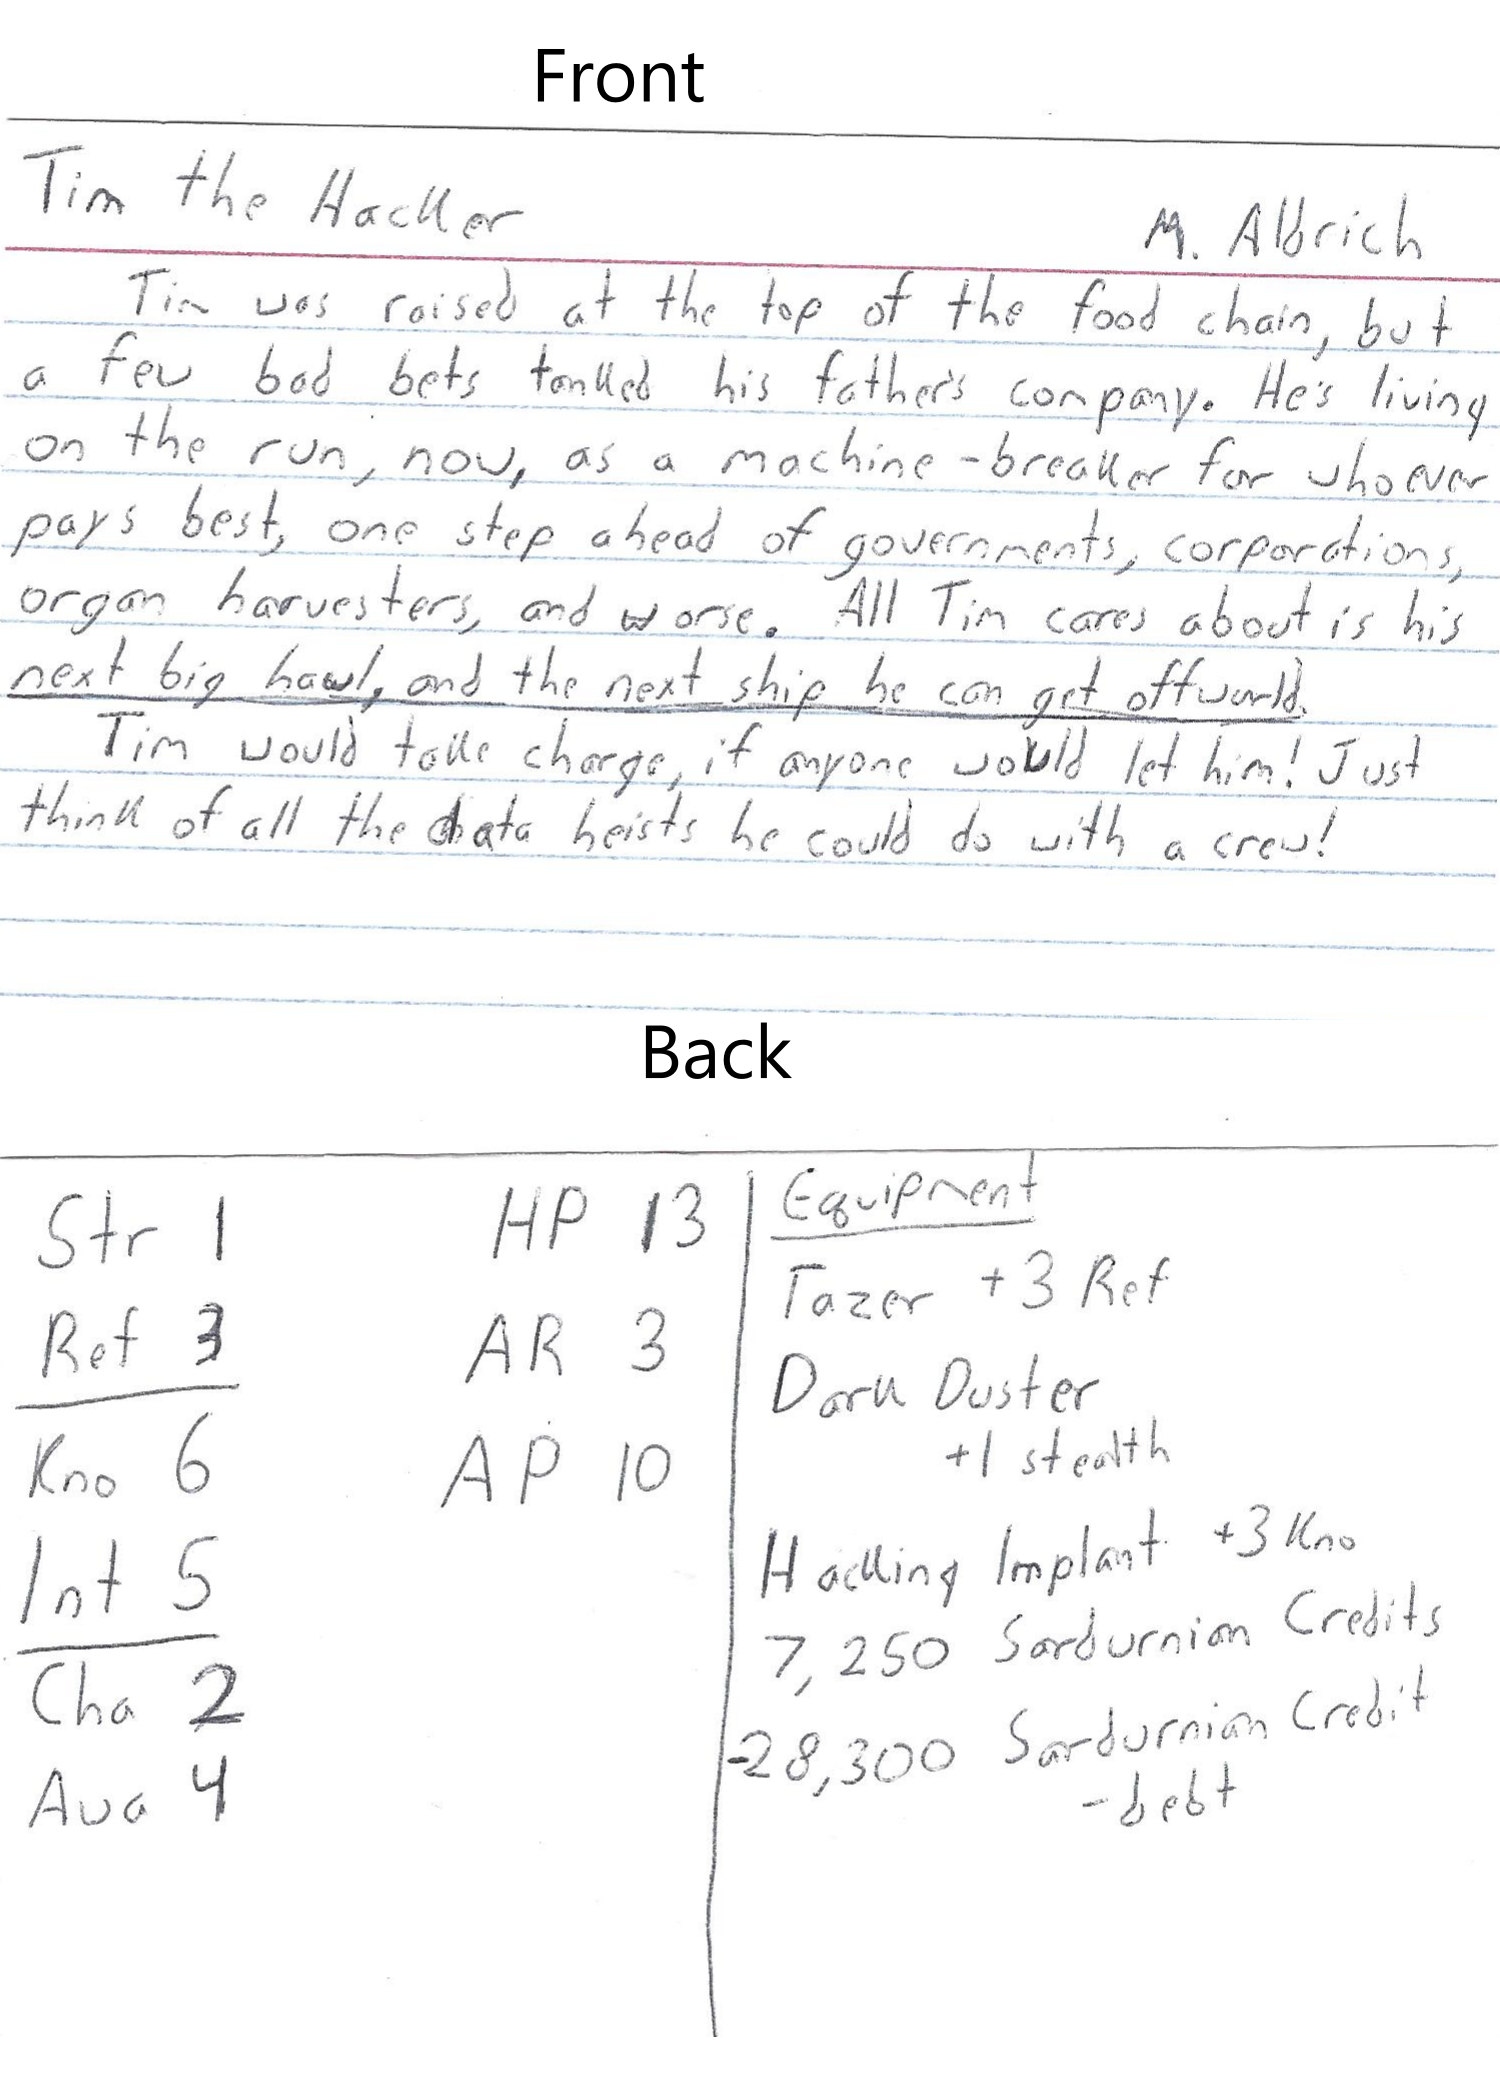 Front
Tim the Hacker M. Aldrich
Tim was raised at the top of the food chain, but
a few bad bets tanked his father's company. He's living
on the run, now, as a machine-breaker for whoever
pays best, one step ahead of governments, corporations,
organ harvesters, and worse. All Tim cares about is his
next big hawl, and the next ship he can get offworld.
Tim would take charge, if anyone would let him! Just
think of all the data heists he could do with a crew!
Back
Str 1
Ref 3
Kno 6
Int 5
Cha 2
Awa 4
HP 13
AR 3
AP 10
Equipment
Tazer +3 Ref
Dark Duster
+1 stealth
Hacking Implant +3 Kno
7,250 Sardurnian Credits
-28,300 Sardurnian Credit
-debt